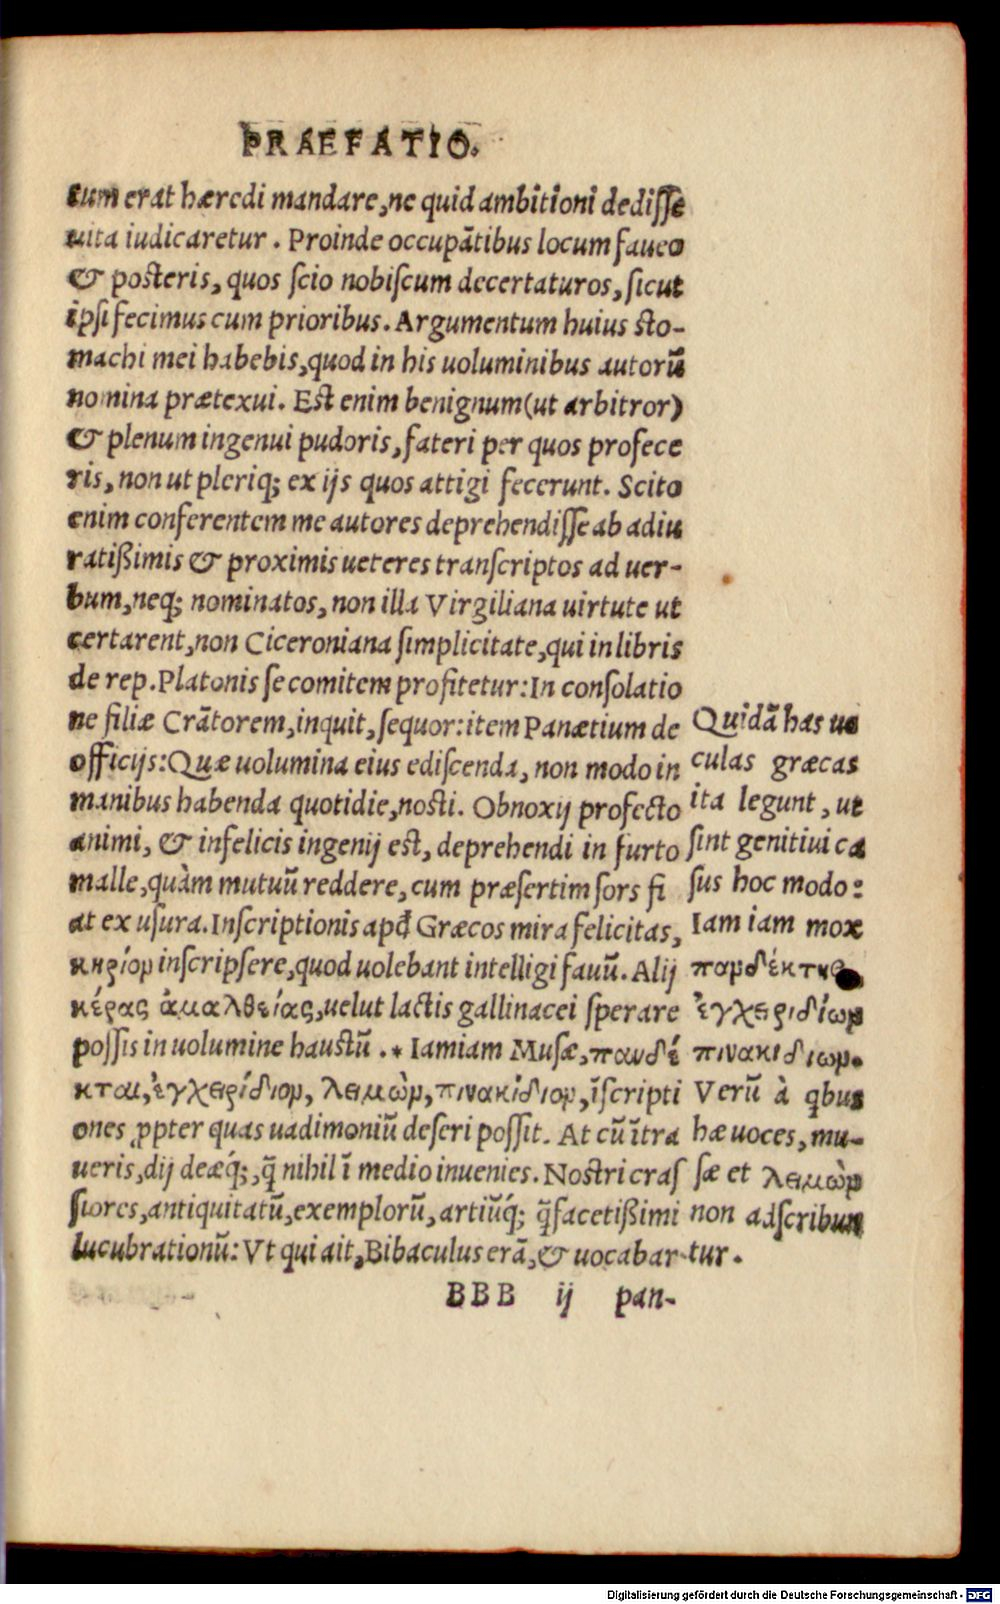 PRAEFATIO.
tum erat hæredi mandare, ne quid ambitioni dedisse
uita iudicaretur. Proinde occupātibus locum faueo
& posteris, quos scio nobiscum decertaturos, sicut
ipsi fecimus cum prioribus. Argumentum huius sto-
machi mei habebis, quod in his uoluminibus autorū
nomina prætexui. Est enim benignum (ut arbitror)
& plenum ingenui pudoris, fateri per quos profece
ris, non ut pleriq; ex ijs quos attigi fecerunt. Scito
enim conferentem me autores deprehendisse ab adiu
ratißimis & proximis ueteres transcriptos ad uer-
bum, neq; nominatos, non illa Virgiliana uirtute ut
certarent, non Ciceroniana simplicitate, qui in libris
de rep. Platonis se comitem profitetur: In consolatio
ne filiæ Crātorem, inquit, sequor: item Panætium de
officijs: Quæ uolumina eius ediscenda, non modo in
manibus habenda quotidie, nosti. Obnoxij profecto
animi, & infelicis ingenij est, deprehendi in furto
malle, quàm mutuū reddere, cum præsertim sors fi
at ex usura. Inscriptionis apđ Græcos mira felicitas,
κηρίον inscripsere, quod uolebant intelligi fauū. Alij
κέρας ἀμαλθείας, uelut lactis gallinacei sperare
possis in uolumine haustū. * Iamiam Musæ, πανδέ
κται, ἐγχειρίδιον, λειμὼν, πινακίδιον, īscripti
ones ꝓpter quas uadimoniū deseri possit. At cū ītra
ueris, dij deæq́;, q̄ nihil ī medio inuenies. Nostri cras
siores, antiquitatū, exemplorū, artiūq́; q̄ facetißimi
lucubrationū: Vt qui ait, Bibaculus erā, & uocabar
BBB ij pan-
Quidā has uo
culas græcas
ita legunt, ut
sint genitiui ca
sus hoc modo:
Iam iam mox
πανδέκτης
ἐγχειριδίων
πινακιδίων.
Verū à qbus
hæ uoces, mu-
sæ et λειμὼν
non adscribun
tur.
Digitalisierung gefördert durch die Deutsche Forschungsgemeinschaft - DFG